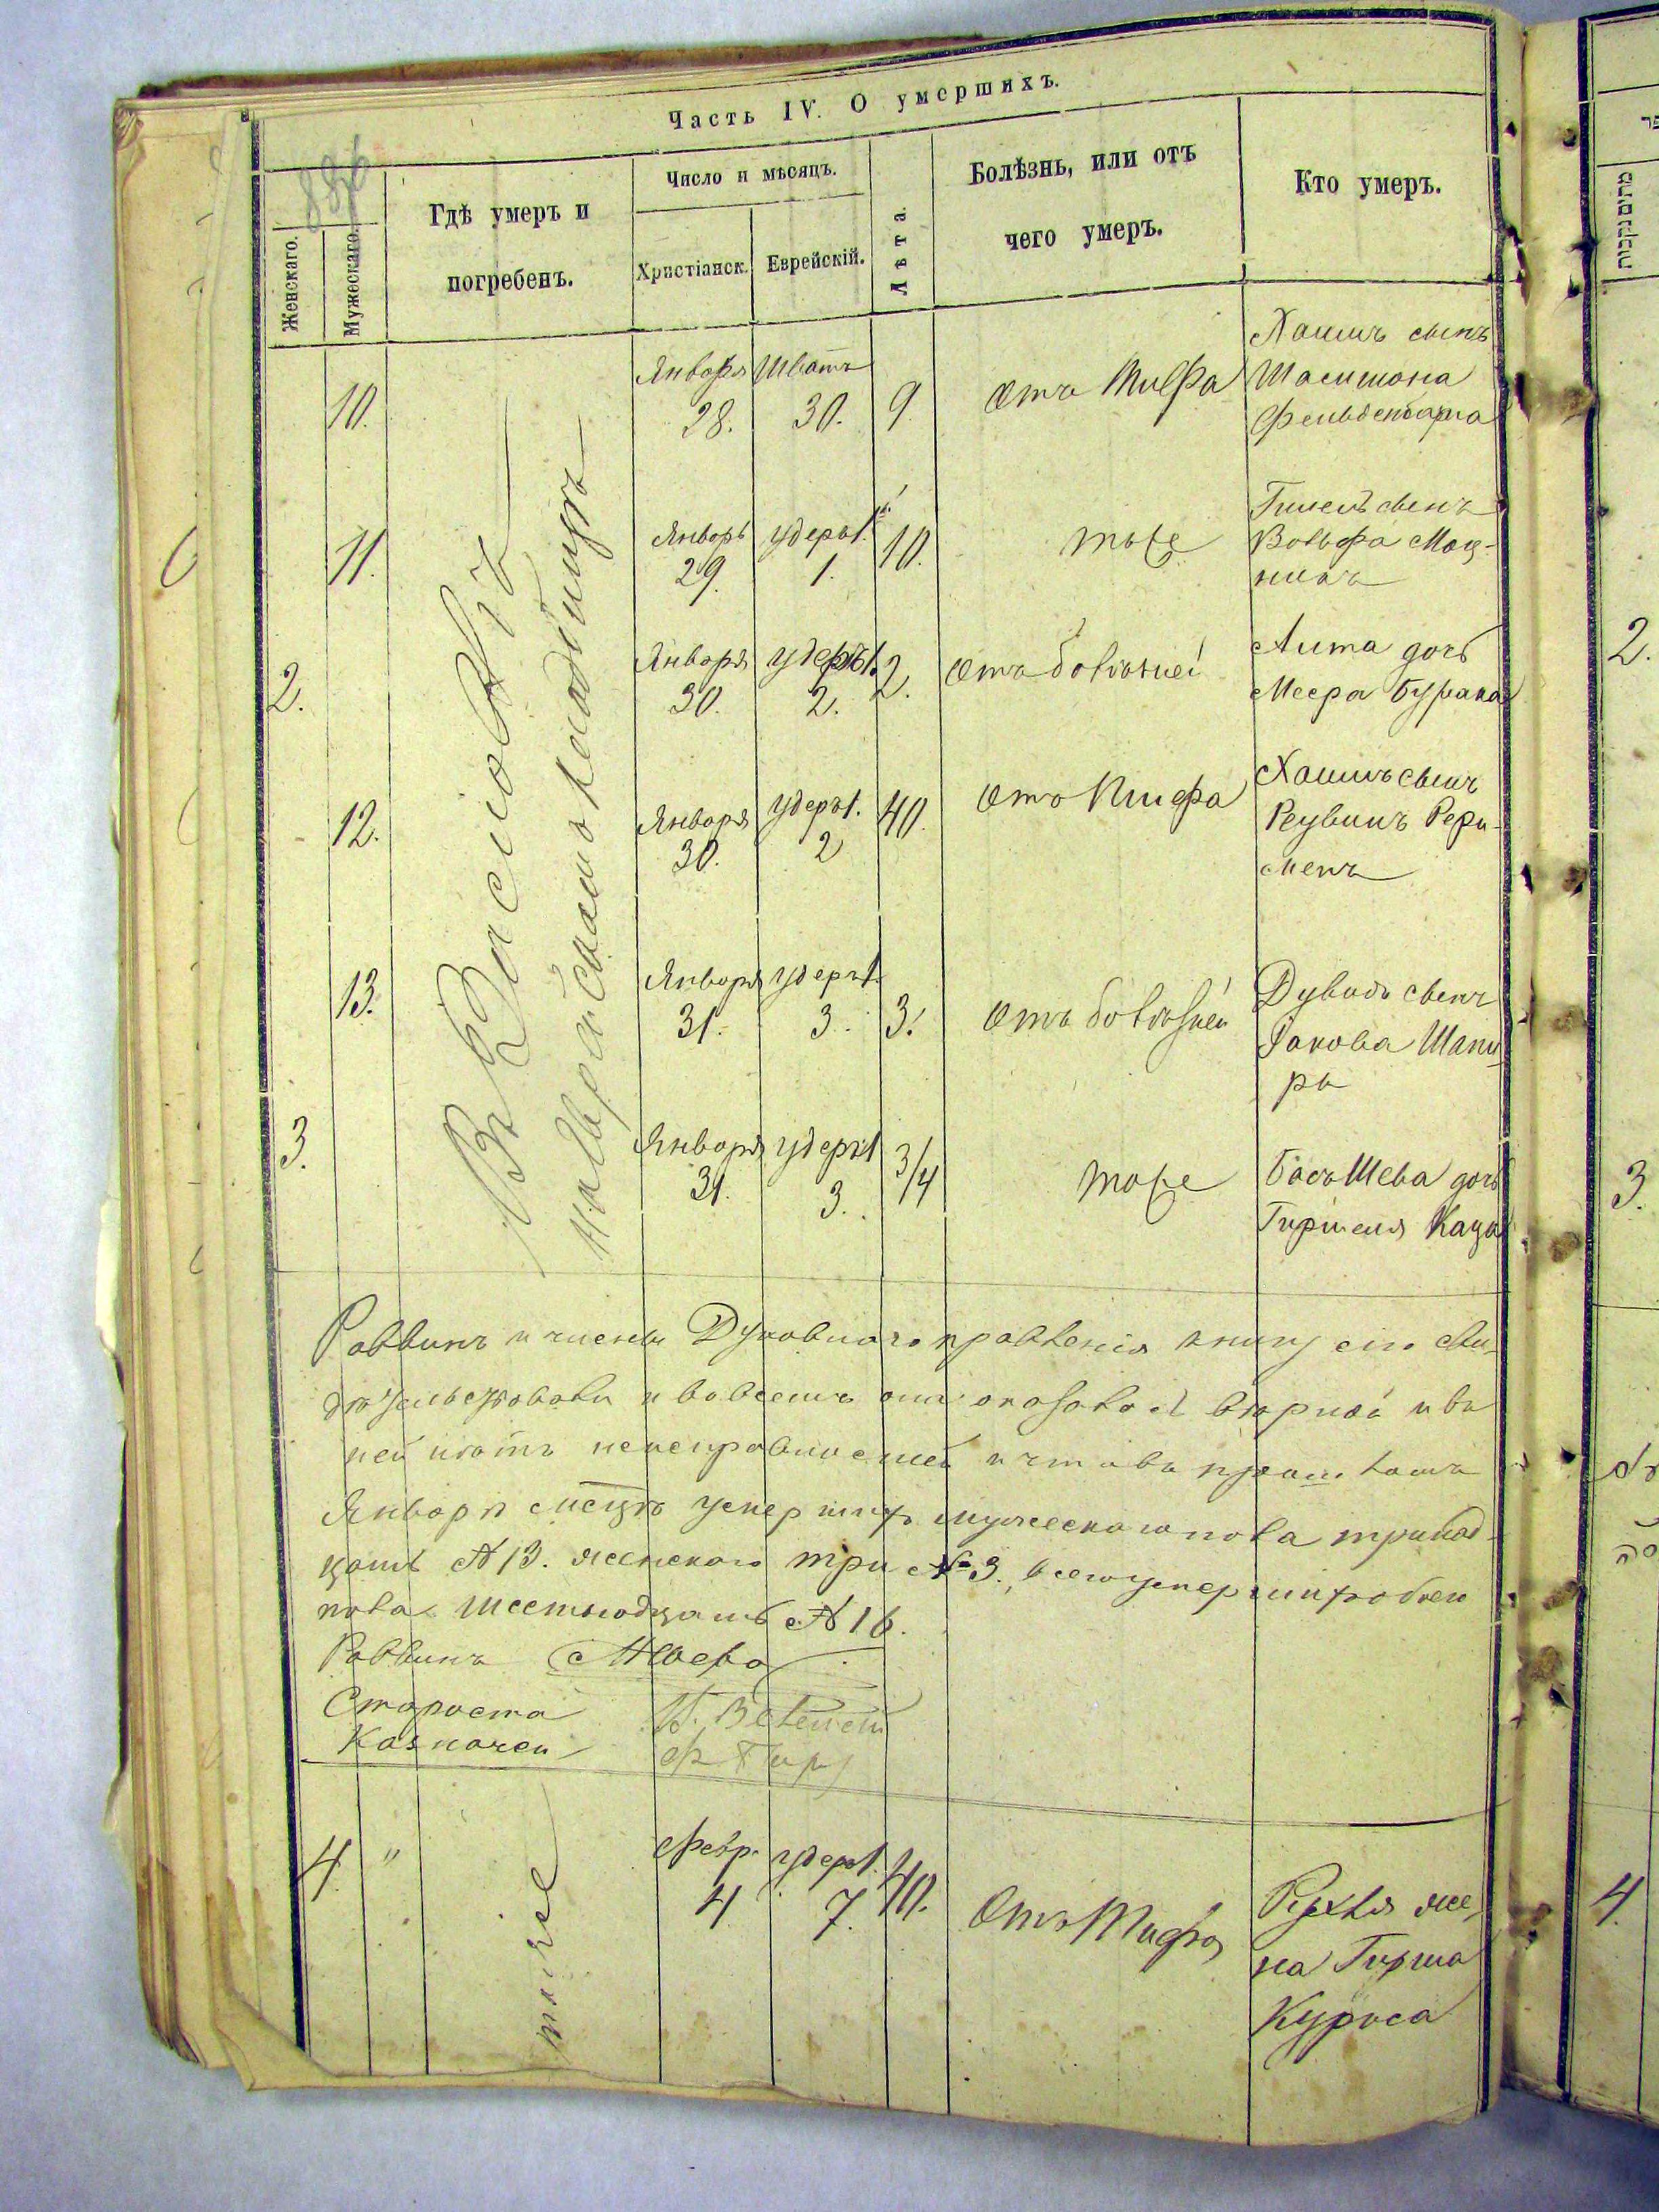 Часть IV. О умершихъ.
Женскаго.
Мужескаго.
Гдѣ умеръ и
погребенъ.
Число и мѣсяцъ.
Христіанск.
Еврейскій.
Лѣта.
Болѣзнь, или отъ
чего умеръ.
Кто умеръ.
10.
Января
28.
Шватъ
30.
9
отъ Тифа
Хаимъ сынъ
Фельденбарга
11.
Январь
29.
удеръ 1.
1.
10.
тоже
сынъ
Вольфа
2.
Января
30.
удеръ 1.
2.
2.
отъ болѣзней
дочь
Меера Бурака
12.
Января
30.
удеръ 1.
2
40.
отъ Тифа
Хаимъ сынъ
13.
Января
31.
удеръ 1
3.
3.
отъ болѣзней
Дувидъ сынъ
Іакова Шапи
ры
3.
Января
31.
удеръ 1
3.
3/4
тоже
Бася Шева дочь
Гиршеля Каца
Раввинъ и члены Духовнаго правленія книгу сію сви-
дѣтельствовали и во всемъ она оказалась вѣрной и въ
ней нѣтъ неисправностей и что въ прошломъ
Январѣ мѣсяцѣ умершихъ мужескаго пола тринад-
цать № 13. женскаго три № 3., всего умершихъ обоего
пола шестнадцать № 16.
Раввинъ
Староста
Казначеи
4.
"
тоже
Февр.
4
удеръ 1.
7.
40.
Отъ Тифа
Рухля же-
на Гирша
Куроса
2.
3.
4.